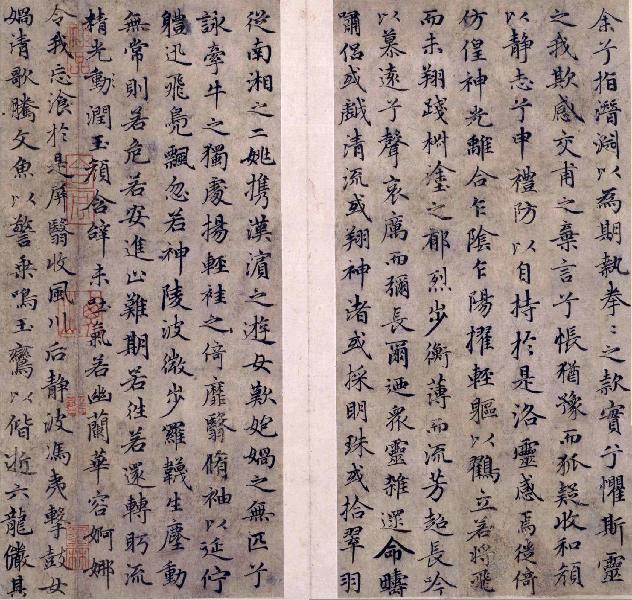 余兮指潛淵以為期執拳〻之款實兮懼斯靈
之我欺感交甫之棄言兮悵猶豫而狐疑收和顏
以静志兮申禮防以自持於是洛靈感焉徙倚
仿偟神光離合乍陰乍陽擢輕軀以鶴立若將飛
而未翔踐椒塗之郁烈步衡薄而流芳超長吟
以慕遠兮聲哀厲而彌長爾迺衆靈雜遝命疇
嘯侣或戲清流或翔神渚或採明珠或拾翠羽
從南湘之二姚攜漢濱之遊女歎匏媧之無匹兮
詠牽牛之獨處揚輕袿之倚靡翳脩袖以延佇
體迅飛鳧飄忽若神陵波微步羅韈生塵動
無常則若危若安進止難期若往若還轉眄流
精光動潤玉顏含辭未吐氣若幽蘭華容婀娜
令我忘飡於是屏翳收風川后静波馮夷擊鼓女
媧清歌騰文魚以警乘鳴玉鸞以偕逝六龍儼其